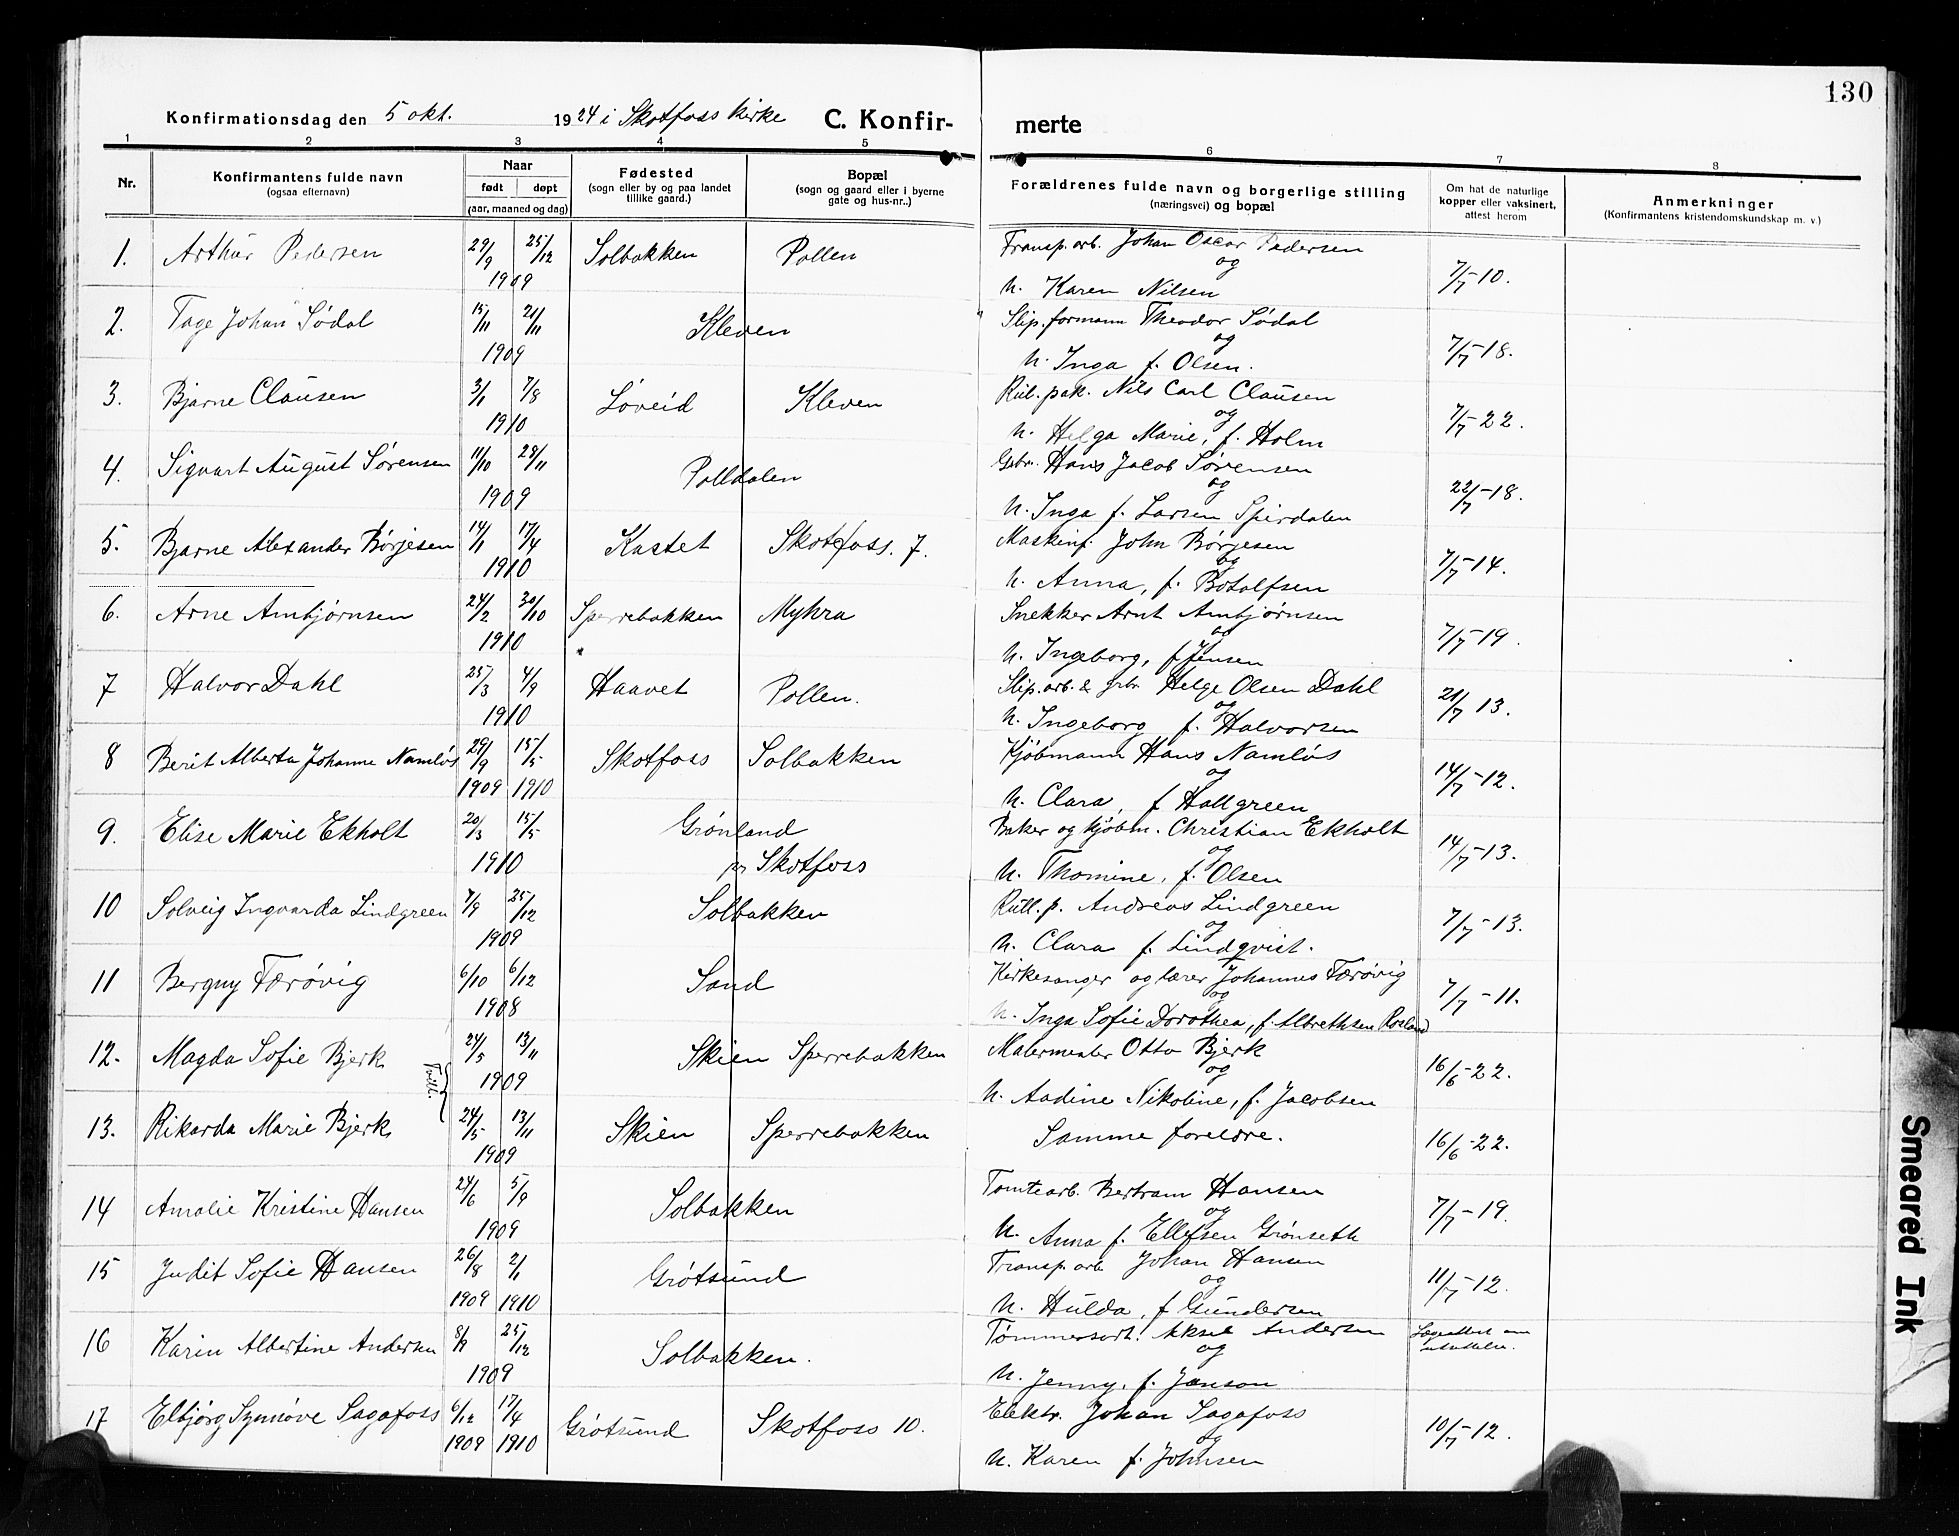 130
Konfirmationsdag den 5 okt. 1924 i Skotfoss kirke C. Konfir- merte
1 2 3 4 5 6 7 8
Nr.
Konfirmantens fulde navn
(ogsaa efternavn)
Naar
født døpt
(aar, maaned og dag)
Fødested
(sogn eller by og paa landet
tillike gaard.)
Bopæl
(sogn og gaard eller i byerne
gate og hus-nr..)
Forældrenes fulde navn og borgerlige stilling
(næringsvei) og bopæl
Om hat de naturlige
kopper eller vaksinert,
attest herom
Anmerkninger
(Konfirmantens kristendomskundskap m. v.)
1. Arthur Pedersen 29/9 25/12 Solbakken Pollen Transp. arb. Johan Oscar Pedersen
og
1909 h. Karen Nilsen 7/7-10.
2. Tage Johan Sødal 15/11 21/11 Kleven Slip. formann Theodor Sødal
og
1909 h. Inga f. Olsen. 7/7-18.
3. Bjarne Clausen 3/1 7/8 Løveid Kleven Rul. pak. Nils Carl Clausen
og
1910 h. Helga Marie, f. Holm 7/7-22.
4. Sigvart August Sørensen 11/10 29/11 Polldalen Gbr. Hans Jacob Sørensen
og
1909 h. Inga f. Larsen Spirdalen 22/7-18.
5. Bjarne Alexander Børjesen 14/1 17/4 Kastet Skotfoss. 7. Maskinf. John Børjesen
og
1910 h. Anna, f. Botolfsen 7/7-14.
6. Arne Ambjørnsen 24/2 30/10 Sperrebakken Myhra Snekker Arnt Ambjørnsen
og
1910 h. Ingeborg, f Jensen 7/7-19.
7 Halvor Dahl 25/3 4/9 Haavet Pollen. Slip. arb. & gbr. Helge Olsen Dahl
og
1910 h. Ingeborg f. Halvorsen 21/7 13.
8 Berit Alberta Johanne Namløs 29/9 15/5 Skotfoss Solbakken Kjøbmann Hans Namløs
og
1909 1910 h. Clara, f Hallgreen 14/7-12.
9. Elise Marie Ekholt 20/3 15/5 Grønland Baker og kjøbm. Christian Ekholt
og
1910 pr Skotfoss h. Thomine, f. Olsen 14/7-13.
10 Solveig Ingvarda Lindgreen 7/9 25/12 Solbakken Rull. p. Andreas Lindgreen
og
1909 h. Clara f. Lindqvist. 7/7-13.
11 Bergny Færøvig 6/10 6/12 Sand Kirkesanger og lærer Johannes Færøvig
og
1908 h. Inga Sofie Dorothea, f. Albrethsen Rosland 7/7-11.
12. Magda Sofie Bjerk 24/5 13/11 Skien Sperrebakken Malermester Otto Bjerk
og
Tvill. 1909 h. Aadine Nikoline, f. Jacobsen 16/6-22.
13. Rikarda Marie Bjerk 24/5 13/11 Skien Sperrebakken Samme foreldre.
1909 16/6-22.
14 Amalie Kristine Hansen 24/6 5/9 Solbakken Tomtearb. Bertram Hansen
og
1909 h. Anna f. Ellefsen Grønseth 7/7-19.
15 Judit Sofie Hansen 26/8 2/1 Grøtsund Transp. arb Johan Hansen
og
1909 1910 h. Hulda, f Gundersen 11/7-12.
16 Karin Albertine Andersen 8/9 25/12 Solbakken. Tømmersort. Aksel Andersen
og
1909 h. Jenny, f. Janson
17 Elbjørg Synnøve Sagafoss 6/12 17/4 Grøtsund Skotfoss 10. Elektr. Johan Sagafoss
og
1909 1910 h. Karen f. Johnsen 10/7-12.
Smeared Ink